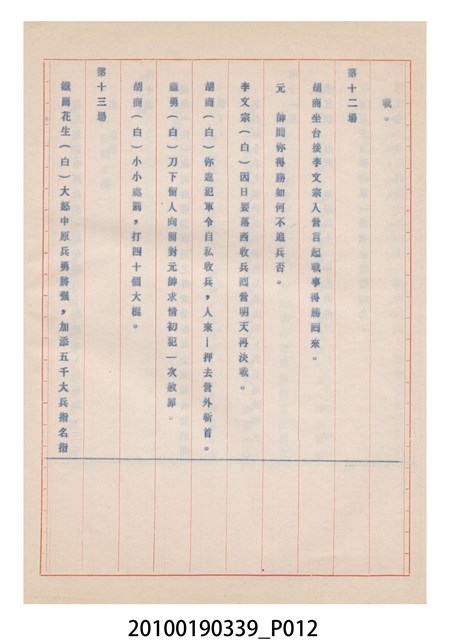 戰。
第十二場
胡商坐台接李文宗入營言起戰事得勝囘來。
元　帥問你得勝如何不追兵否。
李文宗（白）因日要落西收兵囘營明天再決戰。
胡商（白）你違犯軍令自私收兵，人來—押去營外斬首。
龐勇（白）刀下留人向前對元帥求情初犯一次赦罪。
胡商（白）小小處罰，打四十個大棍。
第十三場
鐵爾花生（白）大怒中原兵勇勝強，加添五千大兵指名指
20100190339_P012